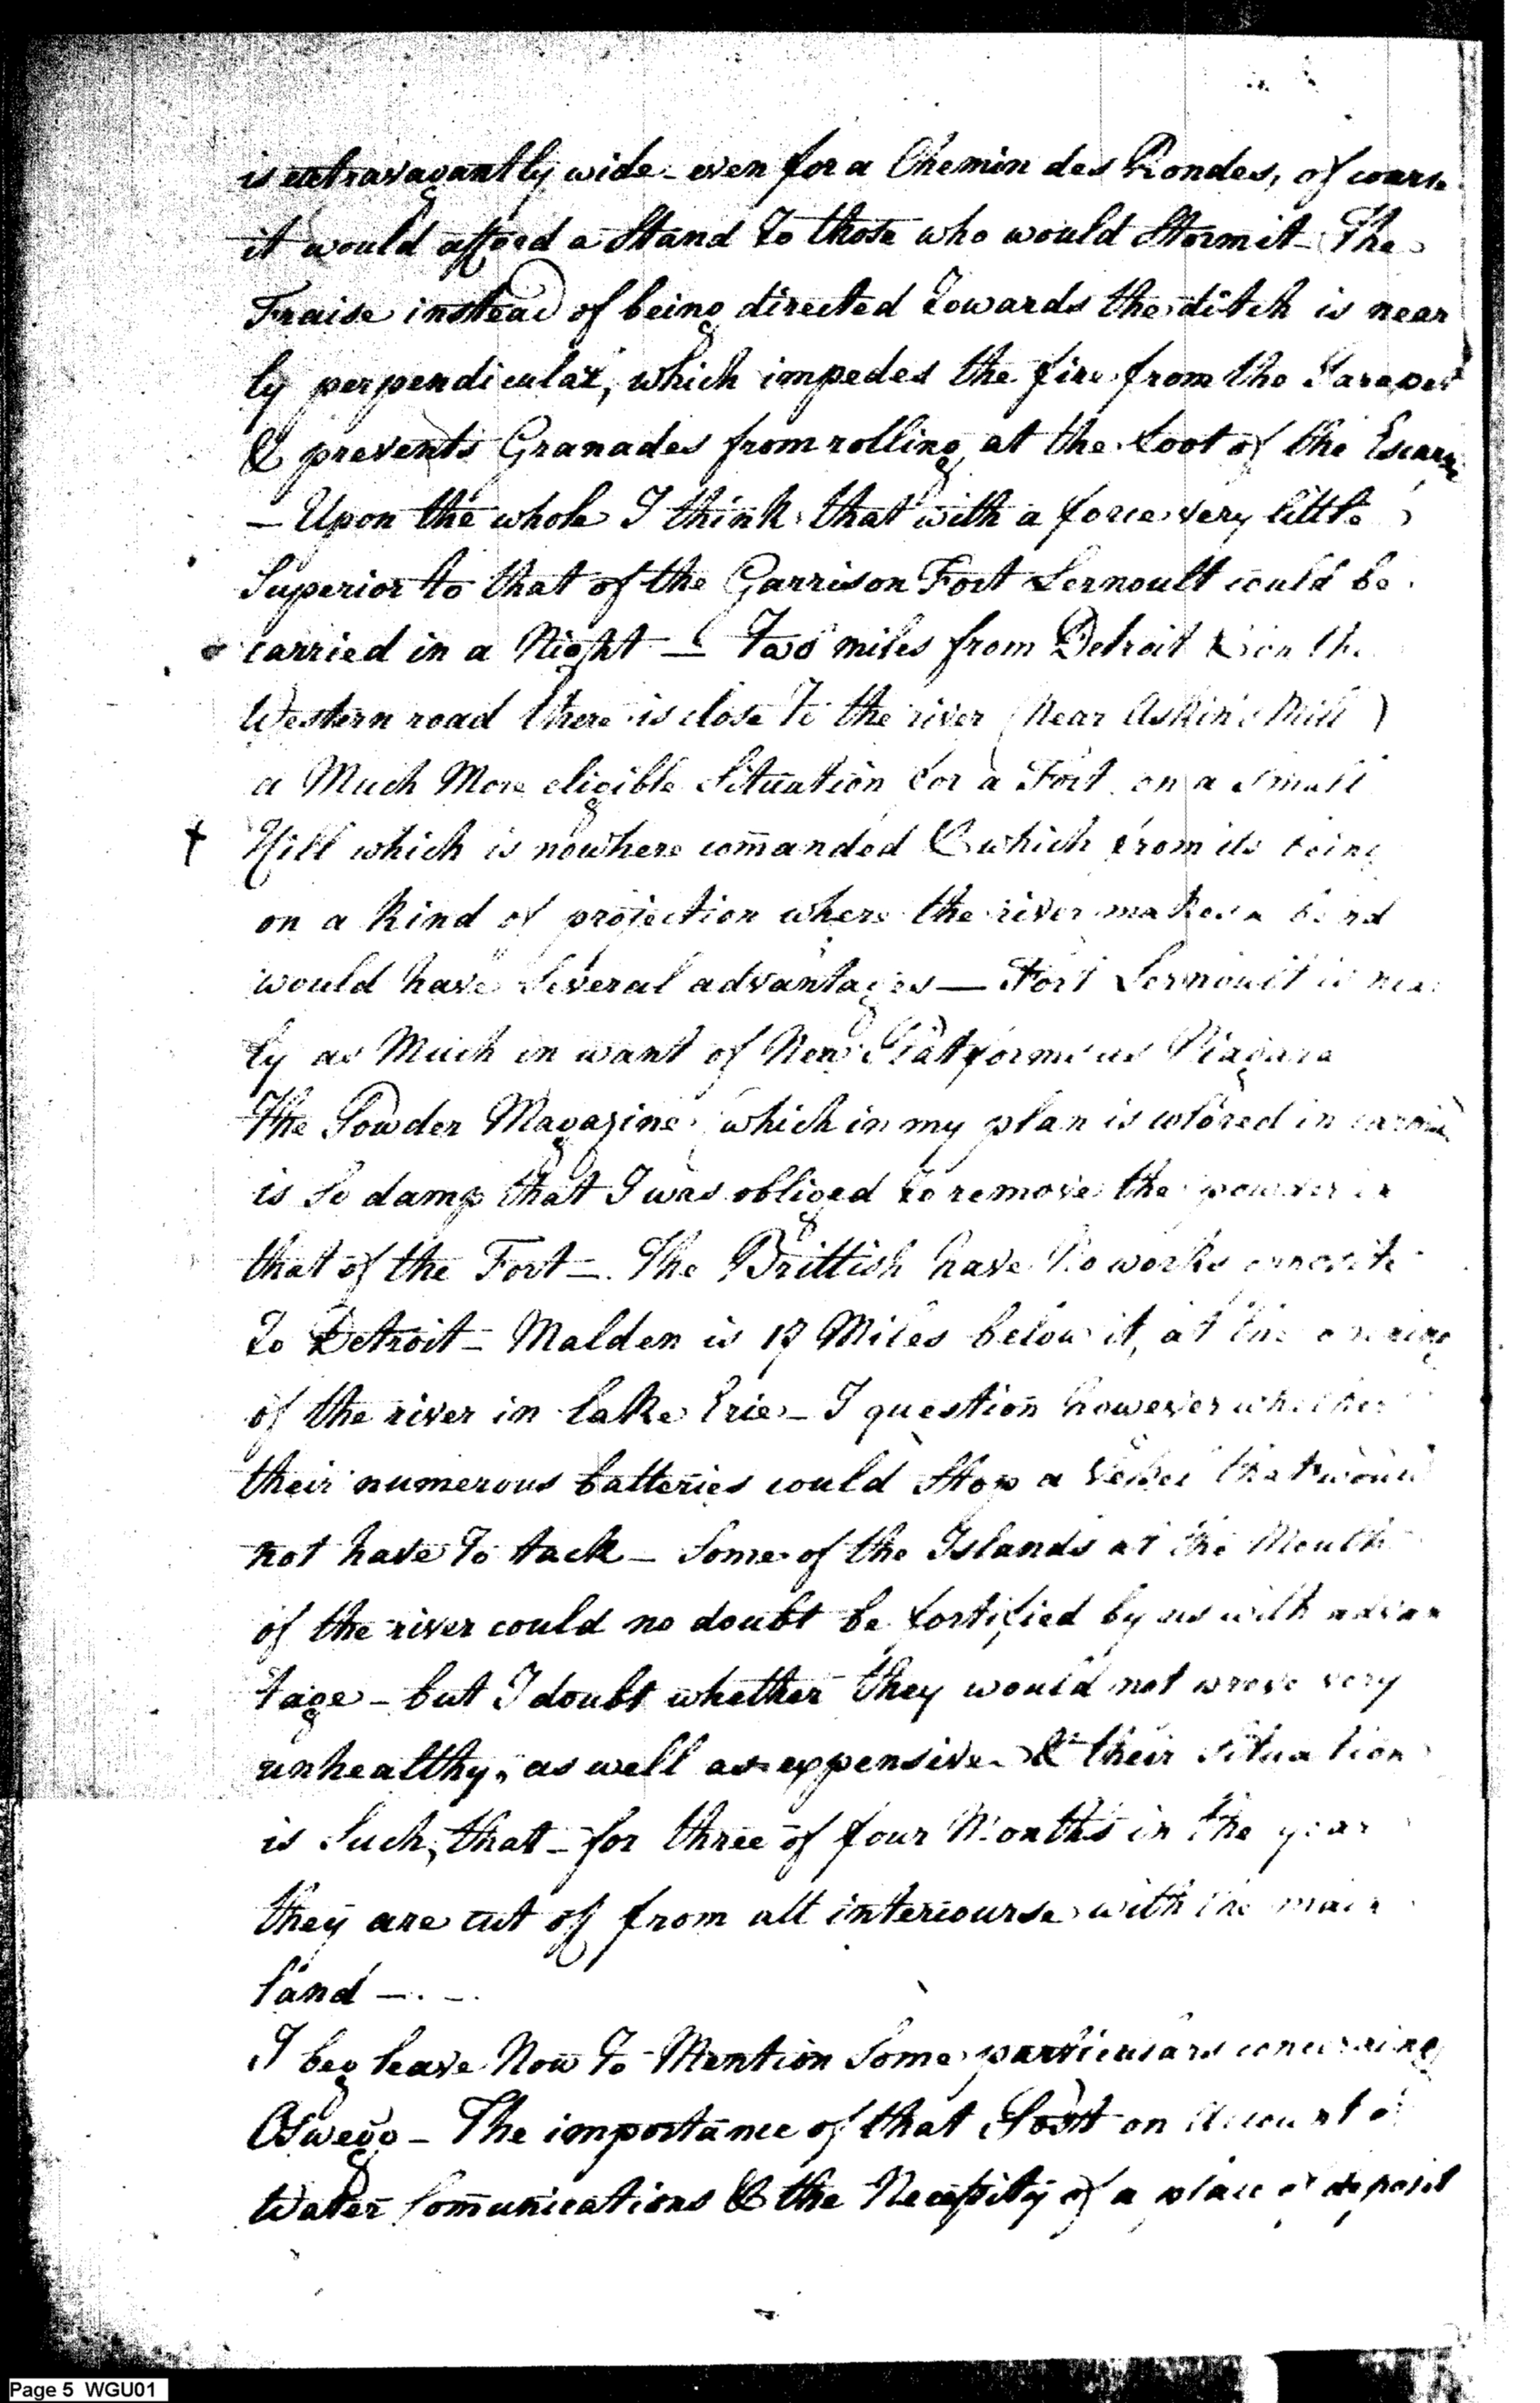 is extravagantly wide - even for a Chemin des Rondes, of course
it would afford a Stand To those who would Storm it - The
Fraise instead of being directed Towards the ditch is near
ly perpendicular, which impedes the fire from the Parapet
& prevents Granades from rolling at the foot of the Escarpe
- Upon the whole I think that with a force very little
Superior to that of the Garrison Fort Lernoult could be
carried in a Night - Two miles from Detroit & on the
Western road there is close To the river (Near Askin's Mill)
a Much More eligible Situation for a Fort on a Small
† Hill which is nowhere com̄anded & which from its being
on a kind of projection where the river makes a bend
would have Several advantages - Fort Lernoult is near
ly as Much in want of New Platforms as Niagara
The Powder Magazine (which in my plan is colored in carmine
is So damp that I was obliged to remove the powder in
that of the Fort - The Brittish have No works opposite
To Detroit - Malden is 17 Miles below it, at the opening
of the river in Lake Erie - I question however whether
their numerous batteries could Stop a Vessel that would
not have To tack - Some of the Islands at the Mouth
of the river could no doubt be fortified by us with advan
tage - but I doubt whether they would not prove very
unhealthy, as well as expensive - & their Situation
is Such, that - for three of four Months in the year
they are cut off from all intercourse with the main
land -. -.
I beg leave Now To Mention Some particulars concerning
Oswego - The importance of that Post on Account of
Water Com̄unications & the Necessity of a place of deposit
Page 5 WGU01